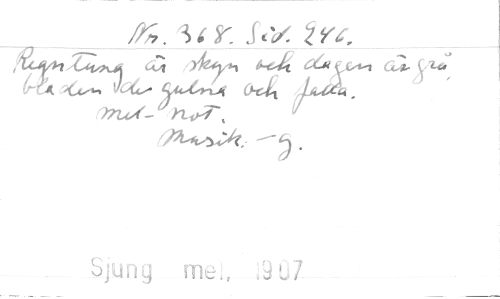 Nr. 368. Sid. 246.
Regntung är skyn och dagen är grå,
bladen de gulna och falla.
mel- not.
Musik. - g.
Sjung mel, 1907